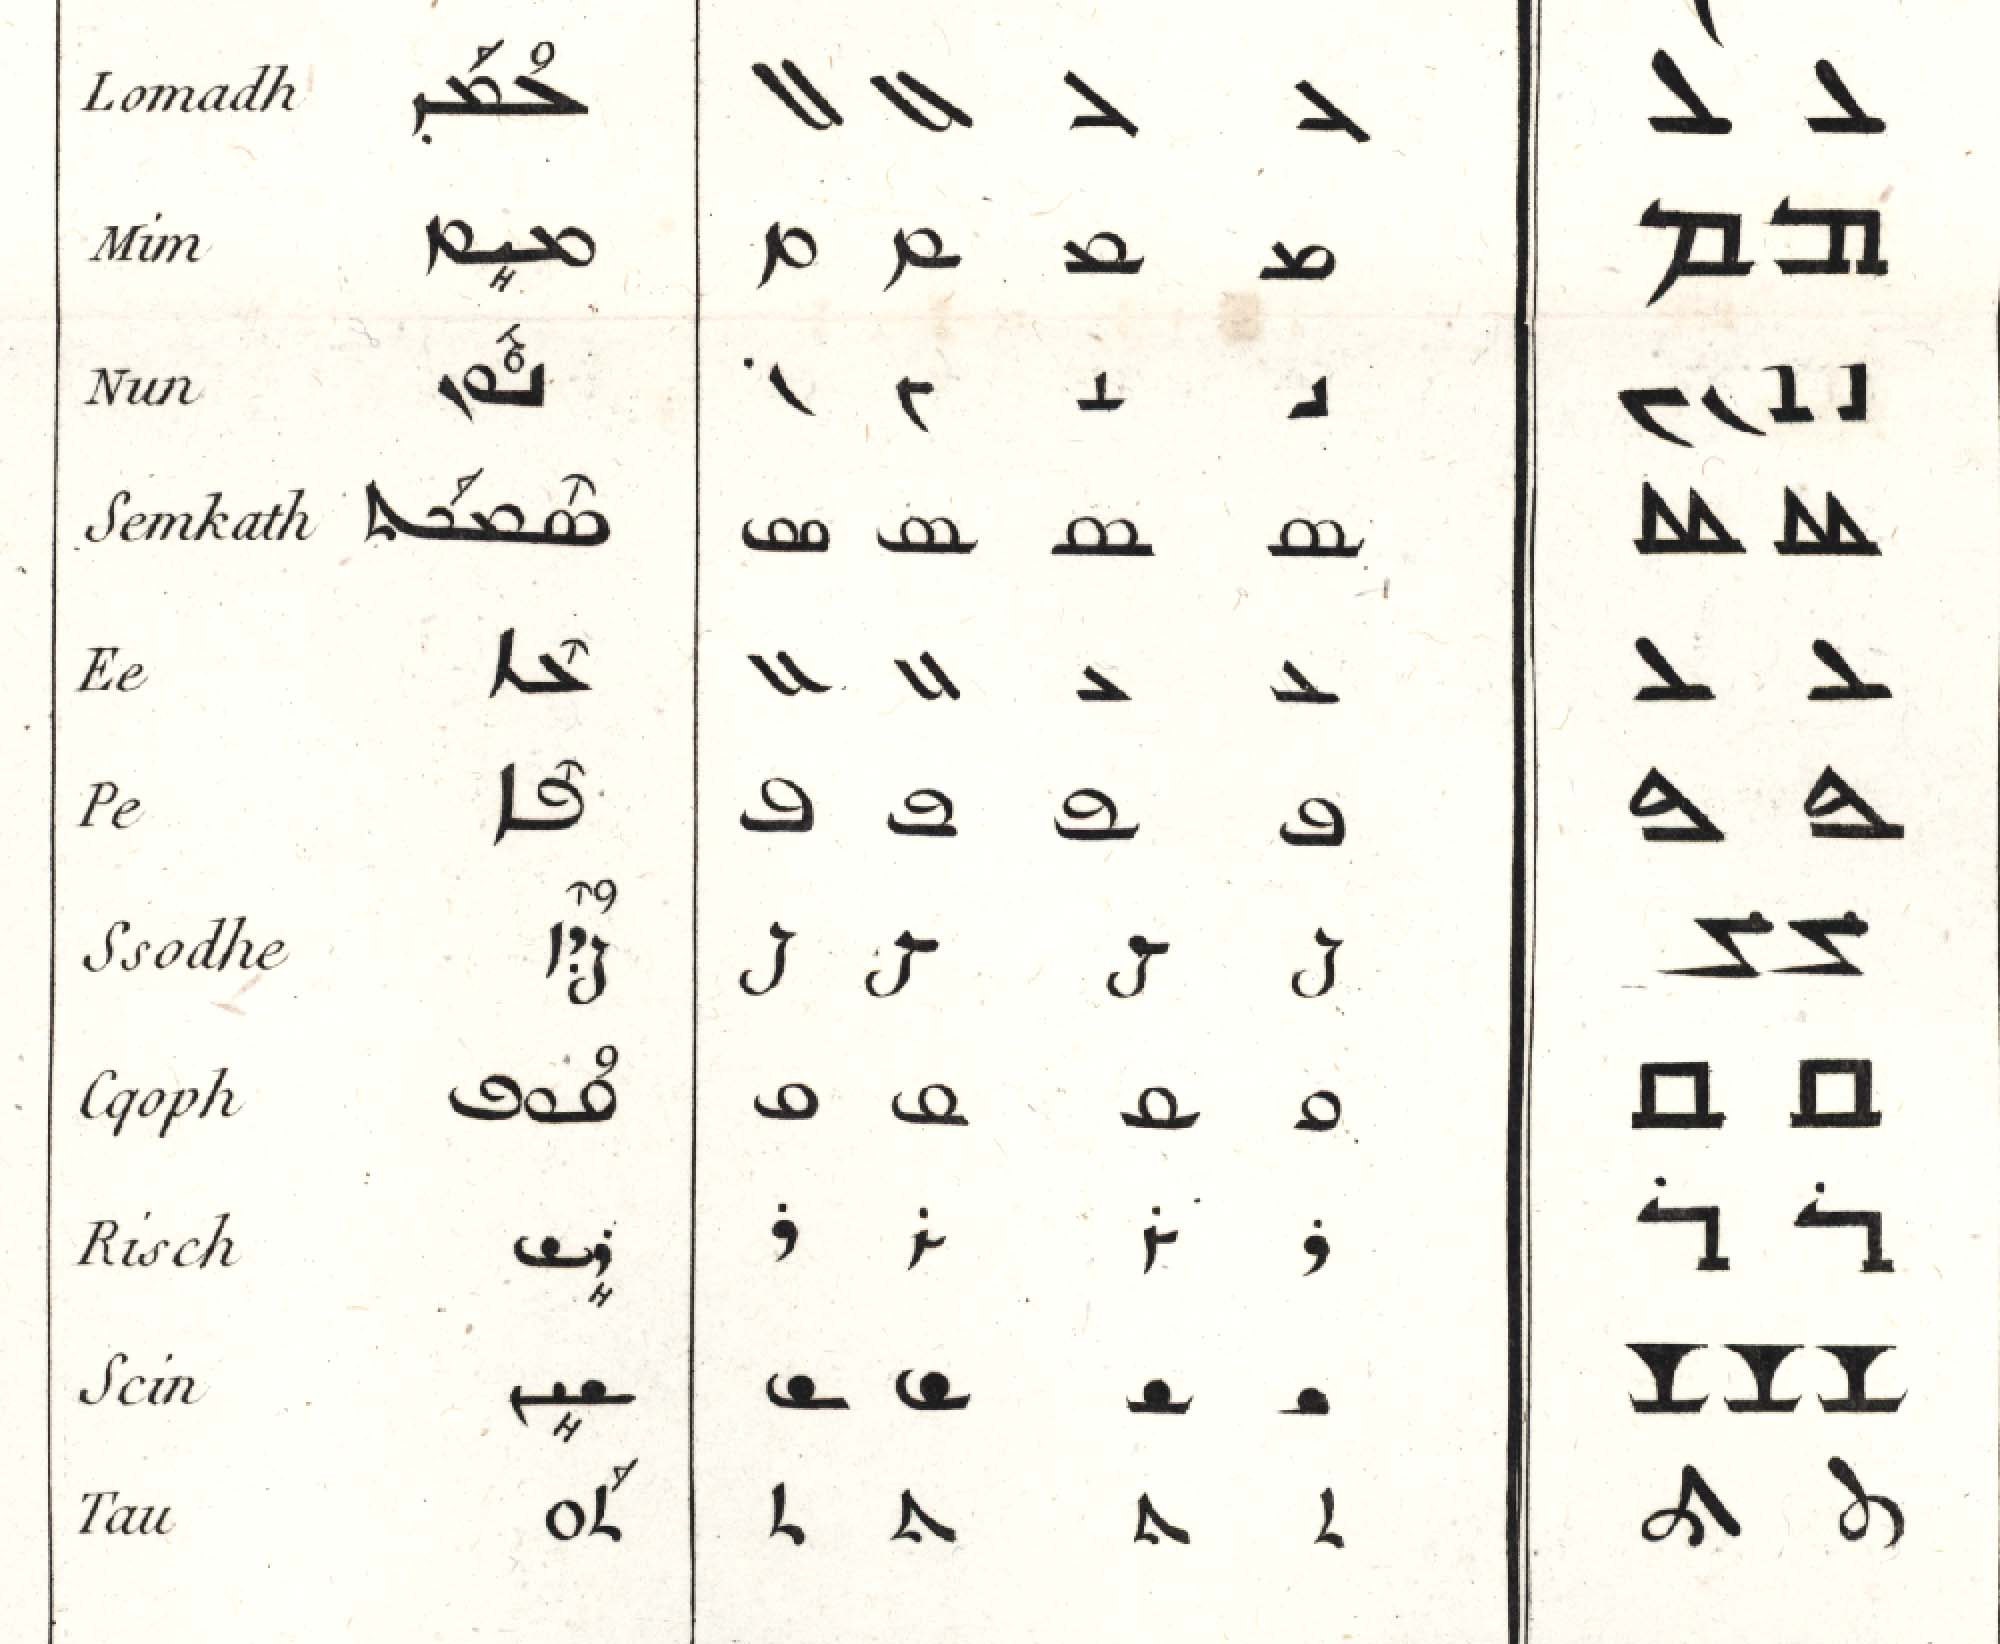 Lomadh ܠܳܡܰܕ ܠ ܠ ܠ ܠ ܠ ܠ
Mim ܡܻܝܡ ܡ ܡ ܡ ܡ ܡ ܡ
Nun ܢܽܘܢ ܢ ܢ ܢ ܢ ܢ ܢ ܢ ܢ
Semkath ܣܶܡܟܰܬ ܣ ܣ ܣ ܣ ܣ ܣ
Ee ܥܶܐ ܥ ܥ ܥ ܥ ܥ ܥ
Pe ܦܶܐ ܦ ܦ ܦ ܦ ܦ ܦ
Ssodhe ܨܳܕܶܐ ܨ ܨ ܨ ܨ ܨ ܨ
Cqoph ܩܳܘܦ ܩ ܩ ܩ ܩ ܩ ܩ
Risch ܪܻܫ ܪ ܪ ܪ ܪ ܪ ܪ
Scin ܫܻܝܢ ܫ ܫ ܫ ܫ ܫ ܫ ܫ
Tau ܬܰܘ ܬ ܬ ܬ ܬ ܬ ܬ